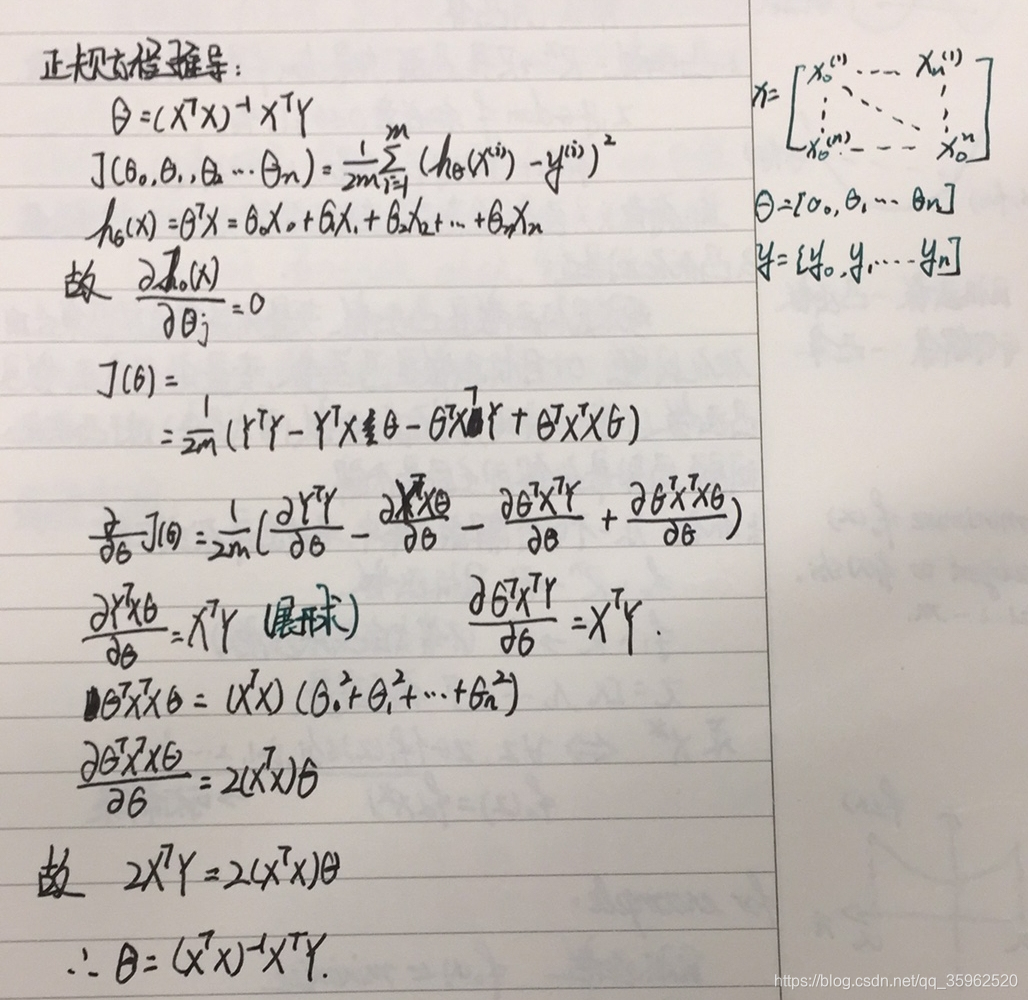 正规方程推导:
θ=(XᵀX)⁻¹XᵀY
J(θ₀,θ₁,θ₂…θn)=1/2m ∑_{i=1}^{m} (hθ(x⁽ⁱ⁾)-y⁽ⁱ⁾)²
hθ(x)=θᵀX=θ₀X₀+θ₁X₁+θ₂X₂+…+θnXn
故 ∂hθ(x)/∂θj=0
J(θ)=
=1/2m(YᵀY-YᵀXθ-θᵀXᵀY+θᵀXᵀXθ)
∂/∂θ J(θ)=1/2m(∂YᵀY/∂θ-∂YᵀXθ/∂θ-∂θᵀXᵀY/∂θ+∂θᵀXᵀXθ/∂θ)
∂YᵀXθ/∂θ=XᵀY (展形求) ∂θᵀXᵀY/∂θ=XᵀY.
θᵀXᵀXθ=(XᵀX)(θ₀²+θ₁²+…+θn²)
∂θᵀXᵀXθ/∂θ=2(XᵀX)θ
故 2XᵀY=2(XᵀX)θ
∴θ=(XᵀX)⁻¹XᵀY.
X=[x₀⁽¹⁾---- xn⁽¹⁾
x₀⁽ⁿ⁾--- x₀ⁿ]
θ=[θ₀,θ₁…θn]
y={y₀,y,…·yn]
https://blog.csdn.net/qq_35962520